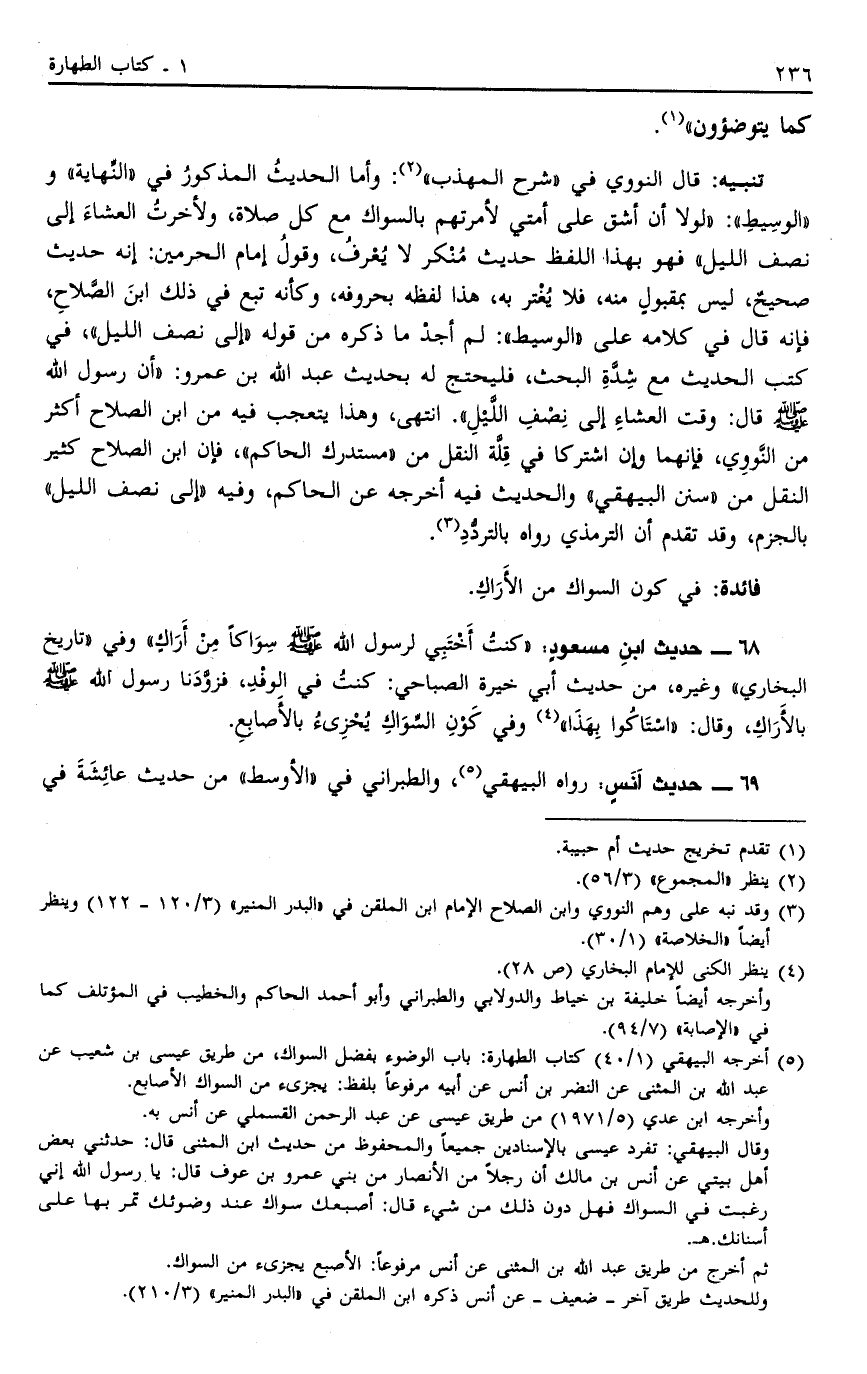 ٢٣٦ ١ - كتاب الطهارة
كما يتوضؤون»(١).
تنبيه: قال النووي في «شرح المهذب»(٢): وأما الحديثُ المذكورُ في «النِّهاية» و
«الوسِيطِ»: «لولا أن أشق على أمتي لأمرتهم بالسواك مع كل صلاة، ولأخرتُ العشاءَ إلى
نصف الليل» فهو بهذا اللفظ حديث مُنْكر لا يُعْرفُ، وقولُ إمام الحرمين: إنه حديث
صحيحٌ، ليس بمقبولٍ منه، فلا يُغْتر به، هذا لفظه بحروفه، وكأنه تبع في ذلك ابنَ الصَّلاحِ،
فإنه قال في كلامه على «الوسيط»: لم أجدْ ما ذكره من قوله «إلى نصف الليل»، في
كتب الحديث مع شِدَّةِ البحث، فليحتج له بحديث عبد الله بن عمرو: «أن رسول الله
ﷺ قال: وقت العشاءِ إلى نِصْفِ اللَّيْلِ». انتهى، وهذا يتعجب فيه من ابن الصلاح أكثر
من النَّووي، فإنهما وإن اشتركا في قِلَّة النقل من «مستدرك الحاكم»، فإن ابن الصلاح كثير
النقل من «سنن البيهقي» والحديث فيه أخرجه عن الحاكم، وفيه «إلى نصف الليل»
بالجزم، وقد تقدم أن الترمذي رواه بالتردُّدِ(٣).
فائدة: في كون السواك من الأَرَاكِ.
٦٨ ـ حديث ابنِ مسعودٍ: «كنتُ أَجْتَبِي لرسول الله ﷺ سِوَاكاً مِنْ أَرَاكِ» وفي «تاريخ
البخاري» وغيره، من حديث أبي خيرة الصباحي: كنتُ في الوفْدِ، فزوَّدَنا رسول الله ﷺ
بالأَرَاكِ، وقال: «اسْتَاكُوا بِهَذَا»(٤) وفي كَوْنِ السِّوَاكِ يُجْزِىءُ بالأَصابِعِ.
٦٩ ـ حديث أنَسٍ: رواه البيهقي(٥)، والطبراني في «الأوسط» من حديث عائِشَةَ في
(١) تقدم تخريج حديث أم حبيبة.
(٢) ينظر «المجموع» (٥٦/٣).
(٣) وقد نبه على وهم النووي وابن الصلاح الإمام ابن الملقن في «البدر المنير» (١٢٠/٣ - ١٢٢) وينظر
أيضاً «الخلاصة» (٣٠/١).
(٤) ينظر الكنى للإمام البخاري (ص ٢٨).
وأخرجه أيضاً خليفة بن خياط والدولابي والطبراني وأبو أحمد الحاكم والخطيب في المؤتلف كما
في «الإصابة» (٩٤/٧).
(٥) أخرجه البيهقي (٤٠/١) كتاب الطهارة: باب الوضوء بفضل السواك، من طريق عيسى بن شعيب عن
عبد الله بن المثنى عن النضر بن أنس عن أبيه مرفوعاً بلفظ: يجزىء من السواك الأصابع.
وأخرجه ابن عدي (١٩٧١/٥) من طريق عيسى عن عبد الرحمن القسملي عن أنس به.
وقال البيهقي: تفرد عيسى بالإسنادين جميعاً والمحفوظ من حديث ابن المثنى قال: حدثني بعض
أهل بيتي عن أنس بن مالك أن رجلاً من الأنصار من بني عمرو بن عوف قال: يا رسول الله إني
رغبت في السواك فهل دون ذلك من شيء قال: أصبعك سواك عند وضوئك تمر بها على
أسنانك.هـ.
ثم أخرج من طريق عبد الله بن المثنى عن أنس مرفوعاً: الأصبع يجزىء من السواك.
وللحديث طريق آخر - ضعيف - عن أنس ذكره ابن الملقن في «البدر المنير» (٢١٠/٣).